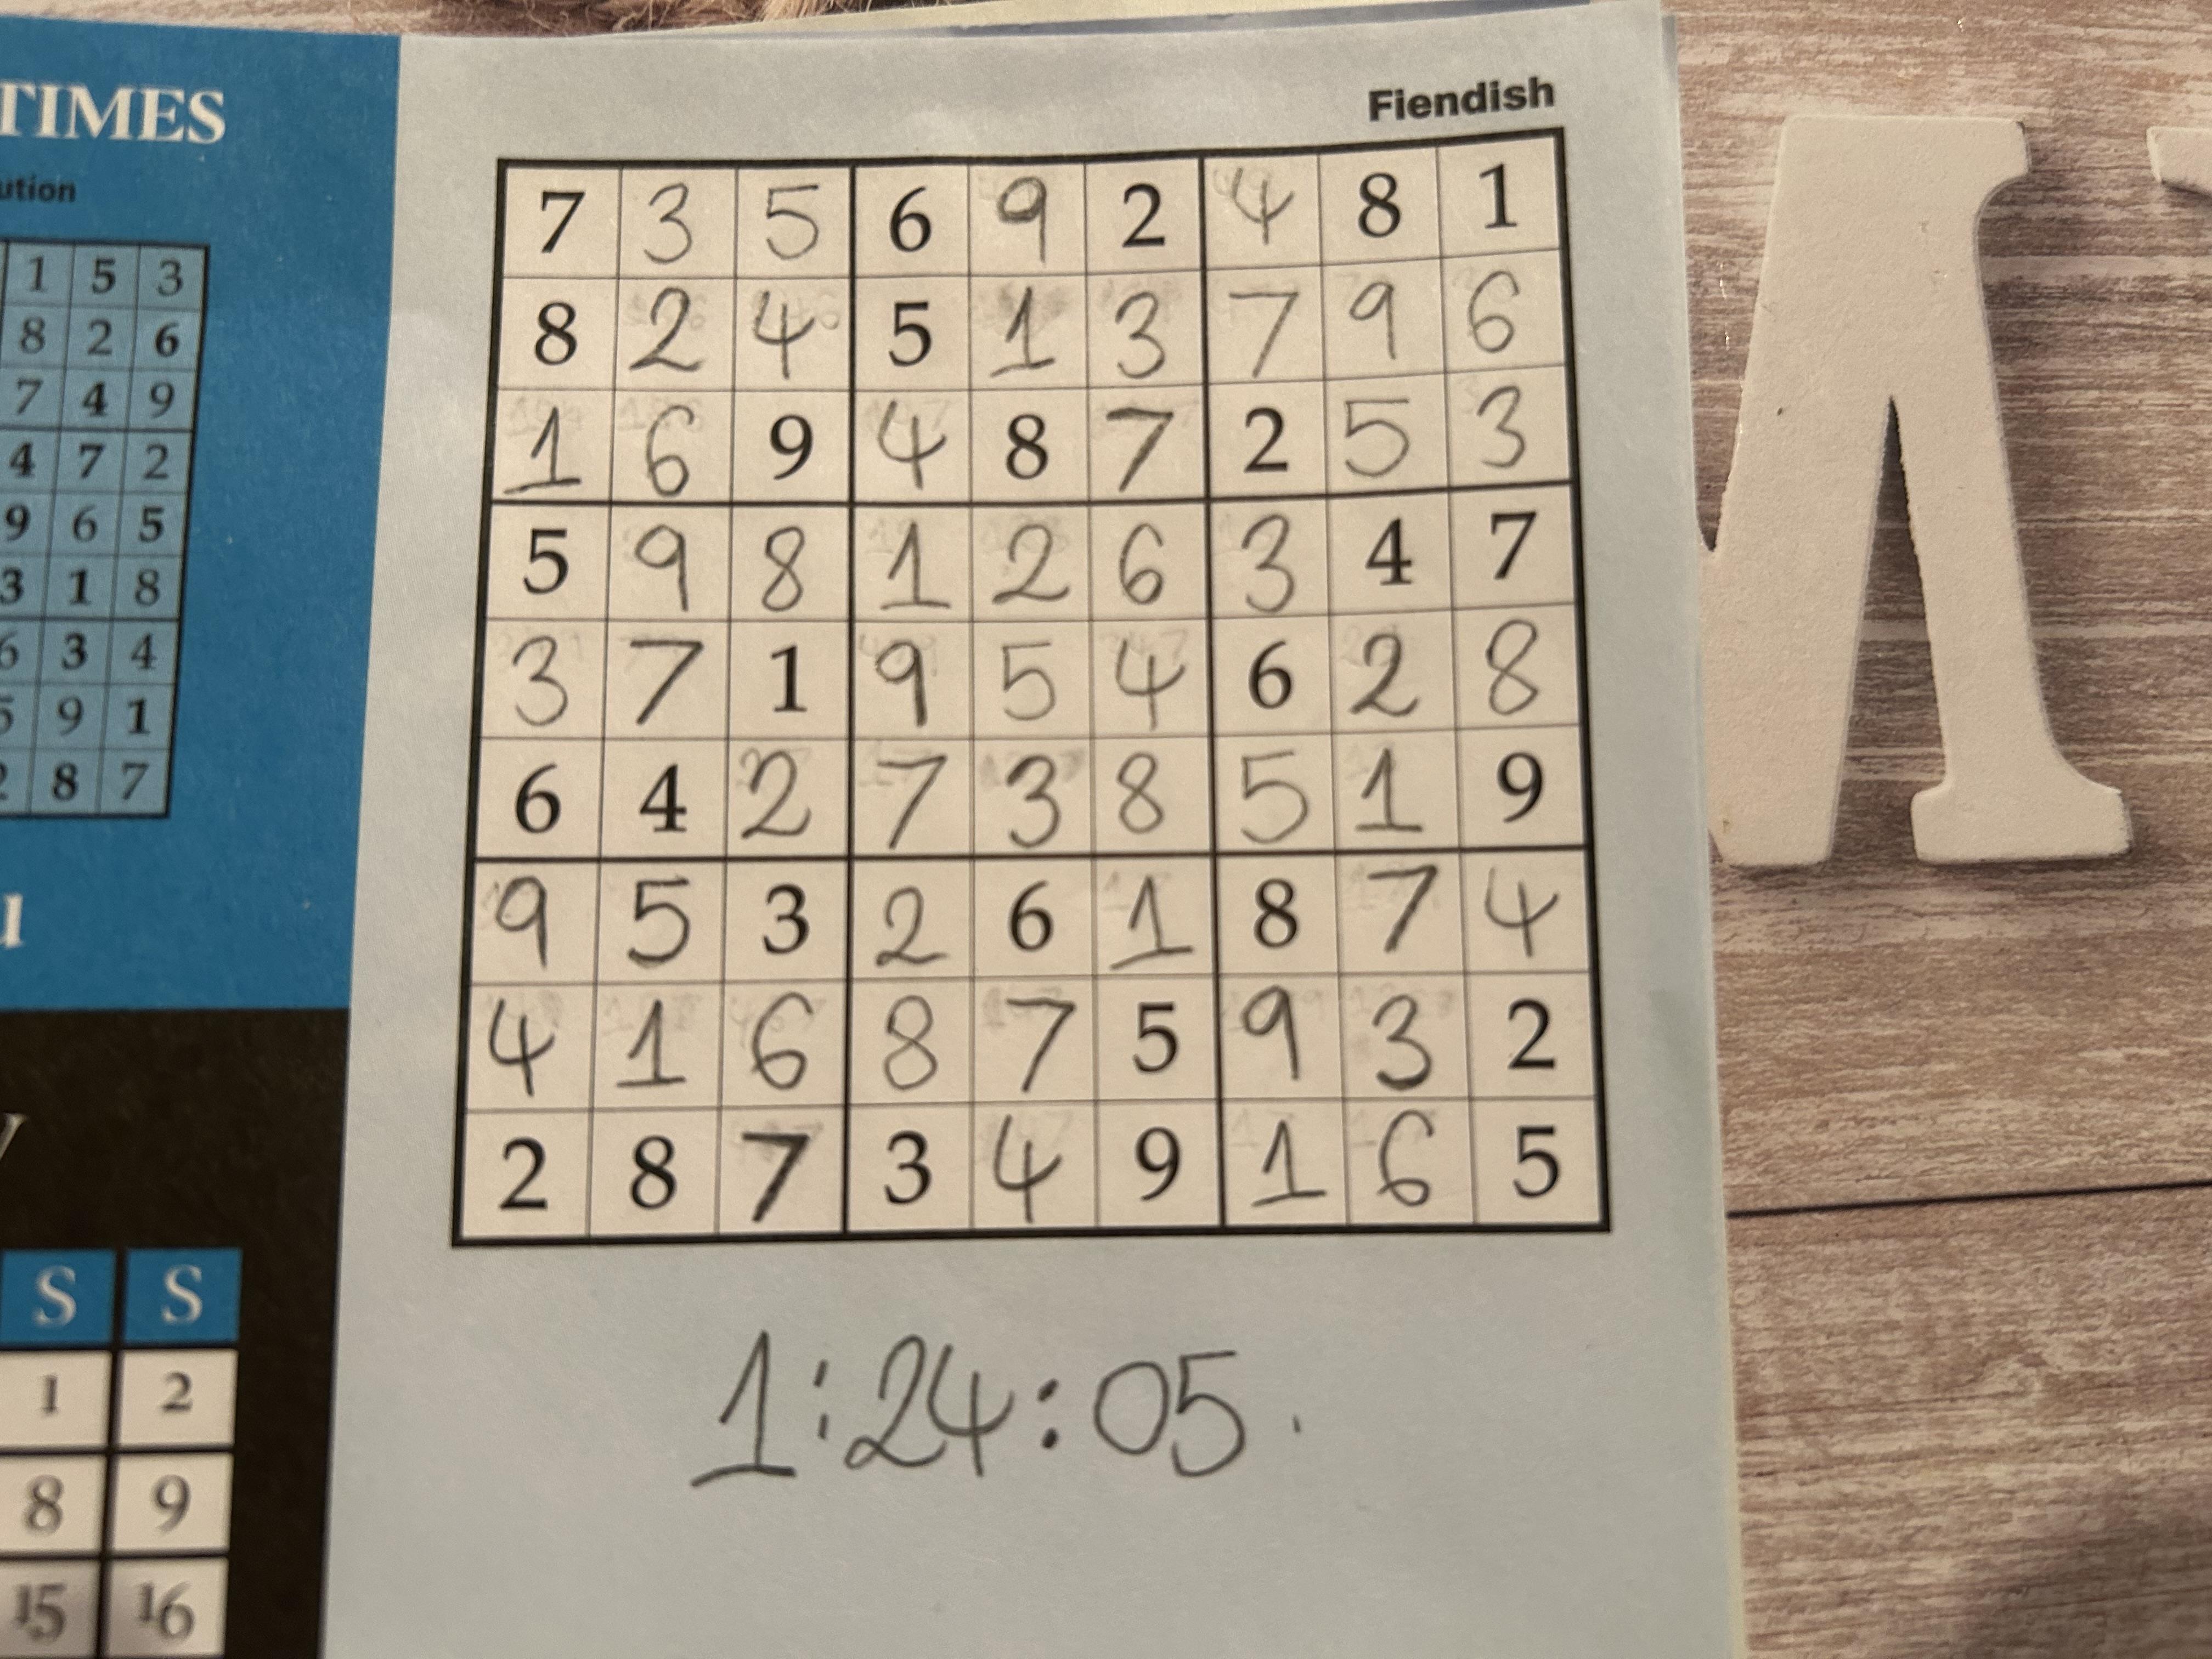 TIMES
ution
1 5 3
8 2 6
7 4 9
4 7 2
9 6 5
3 1 8
6 3 4
5 9 1
2 8 7
u
S S
1 2
8 9
15 16
Fiendish
7 3 5 6 9 2 4 8 1
8 2 4 5 1 3 7 9 6
1 6 9 4 8 7 2 5 3
5 9 8 1 2 6 3 4 7
3 7 1 9 5 4 6 2 8
6 4 2 7 3 8 5 1 9
9 5 3 2 6 1 8 7 4
4 1 6 8 7 5 9 3 2
2 8 7 3 4 9 1 6 5
1:24:05.
M